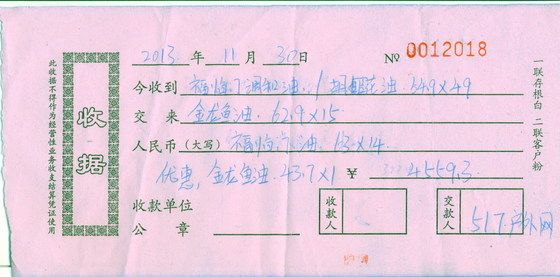 2013 年 11 月 30 日 № 0012018
今收到 福临门调和油/胡姬花油 54.9×49
交来 金龙鱼油 62.9×15
人民币（大写）福临门油 63×14
优惠，金龙鱼油 43.7×1 ¥ 4559.3
收款单位
公章
收款人
交款人 517户外网
收据
此收据不得作为经营性业务收支结算凭证使用
一联存根白 二联客户粉